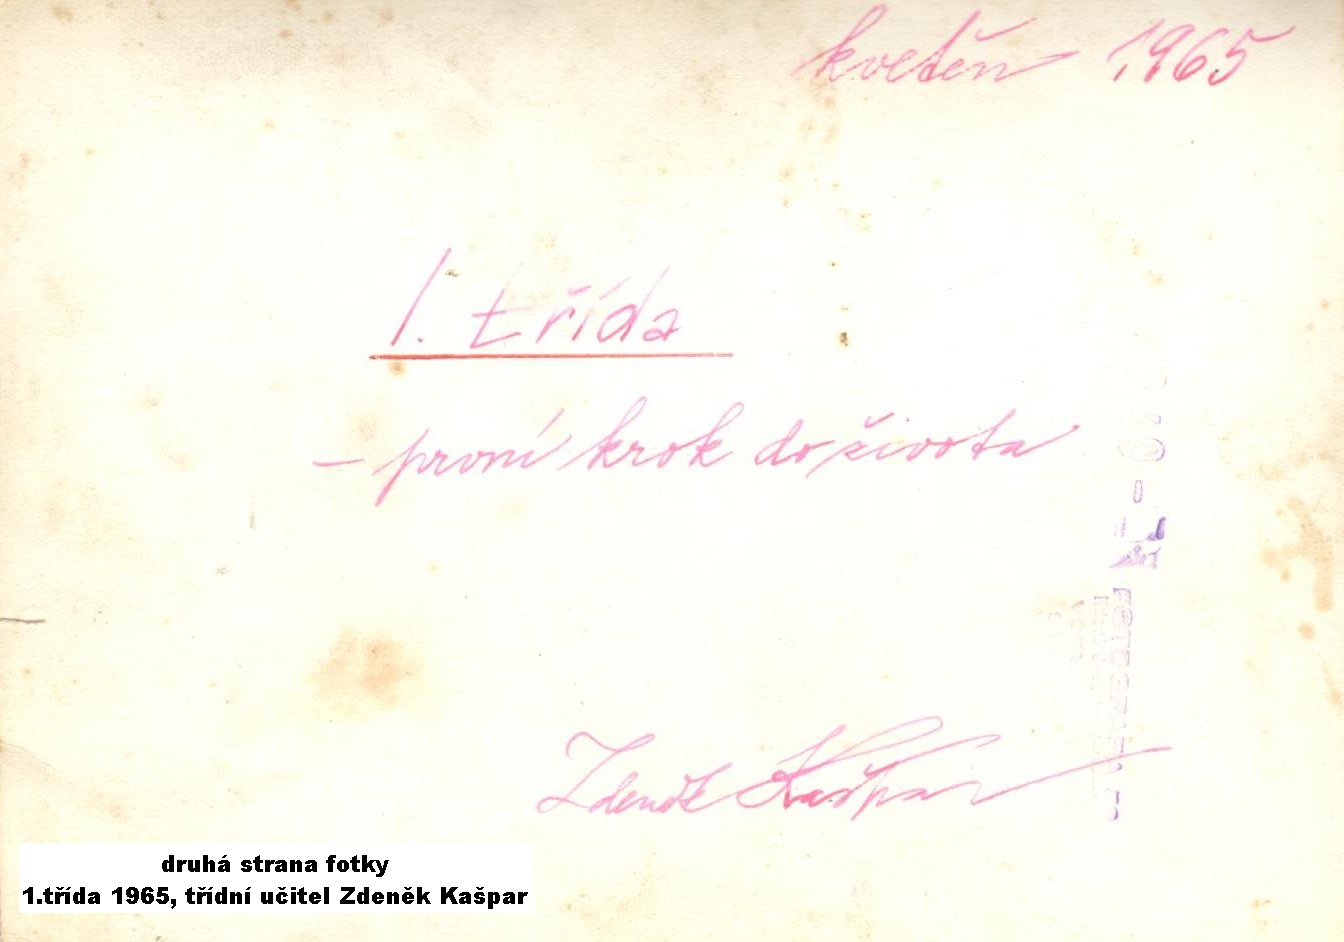 květen 1965
1. třída
- první krok do života
Zdeněk Kašpar
druhá strana fotky
1.třída 1965, třídní učitel Zdeněk Kašpar